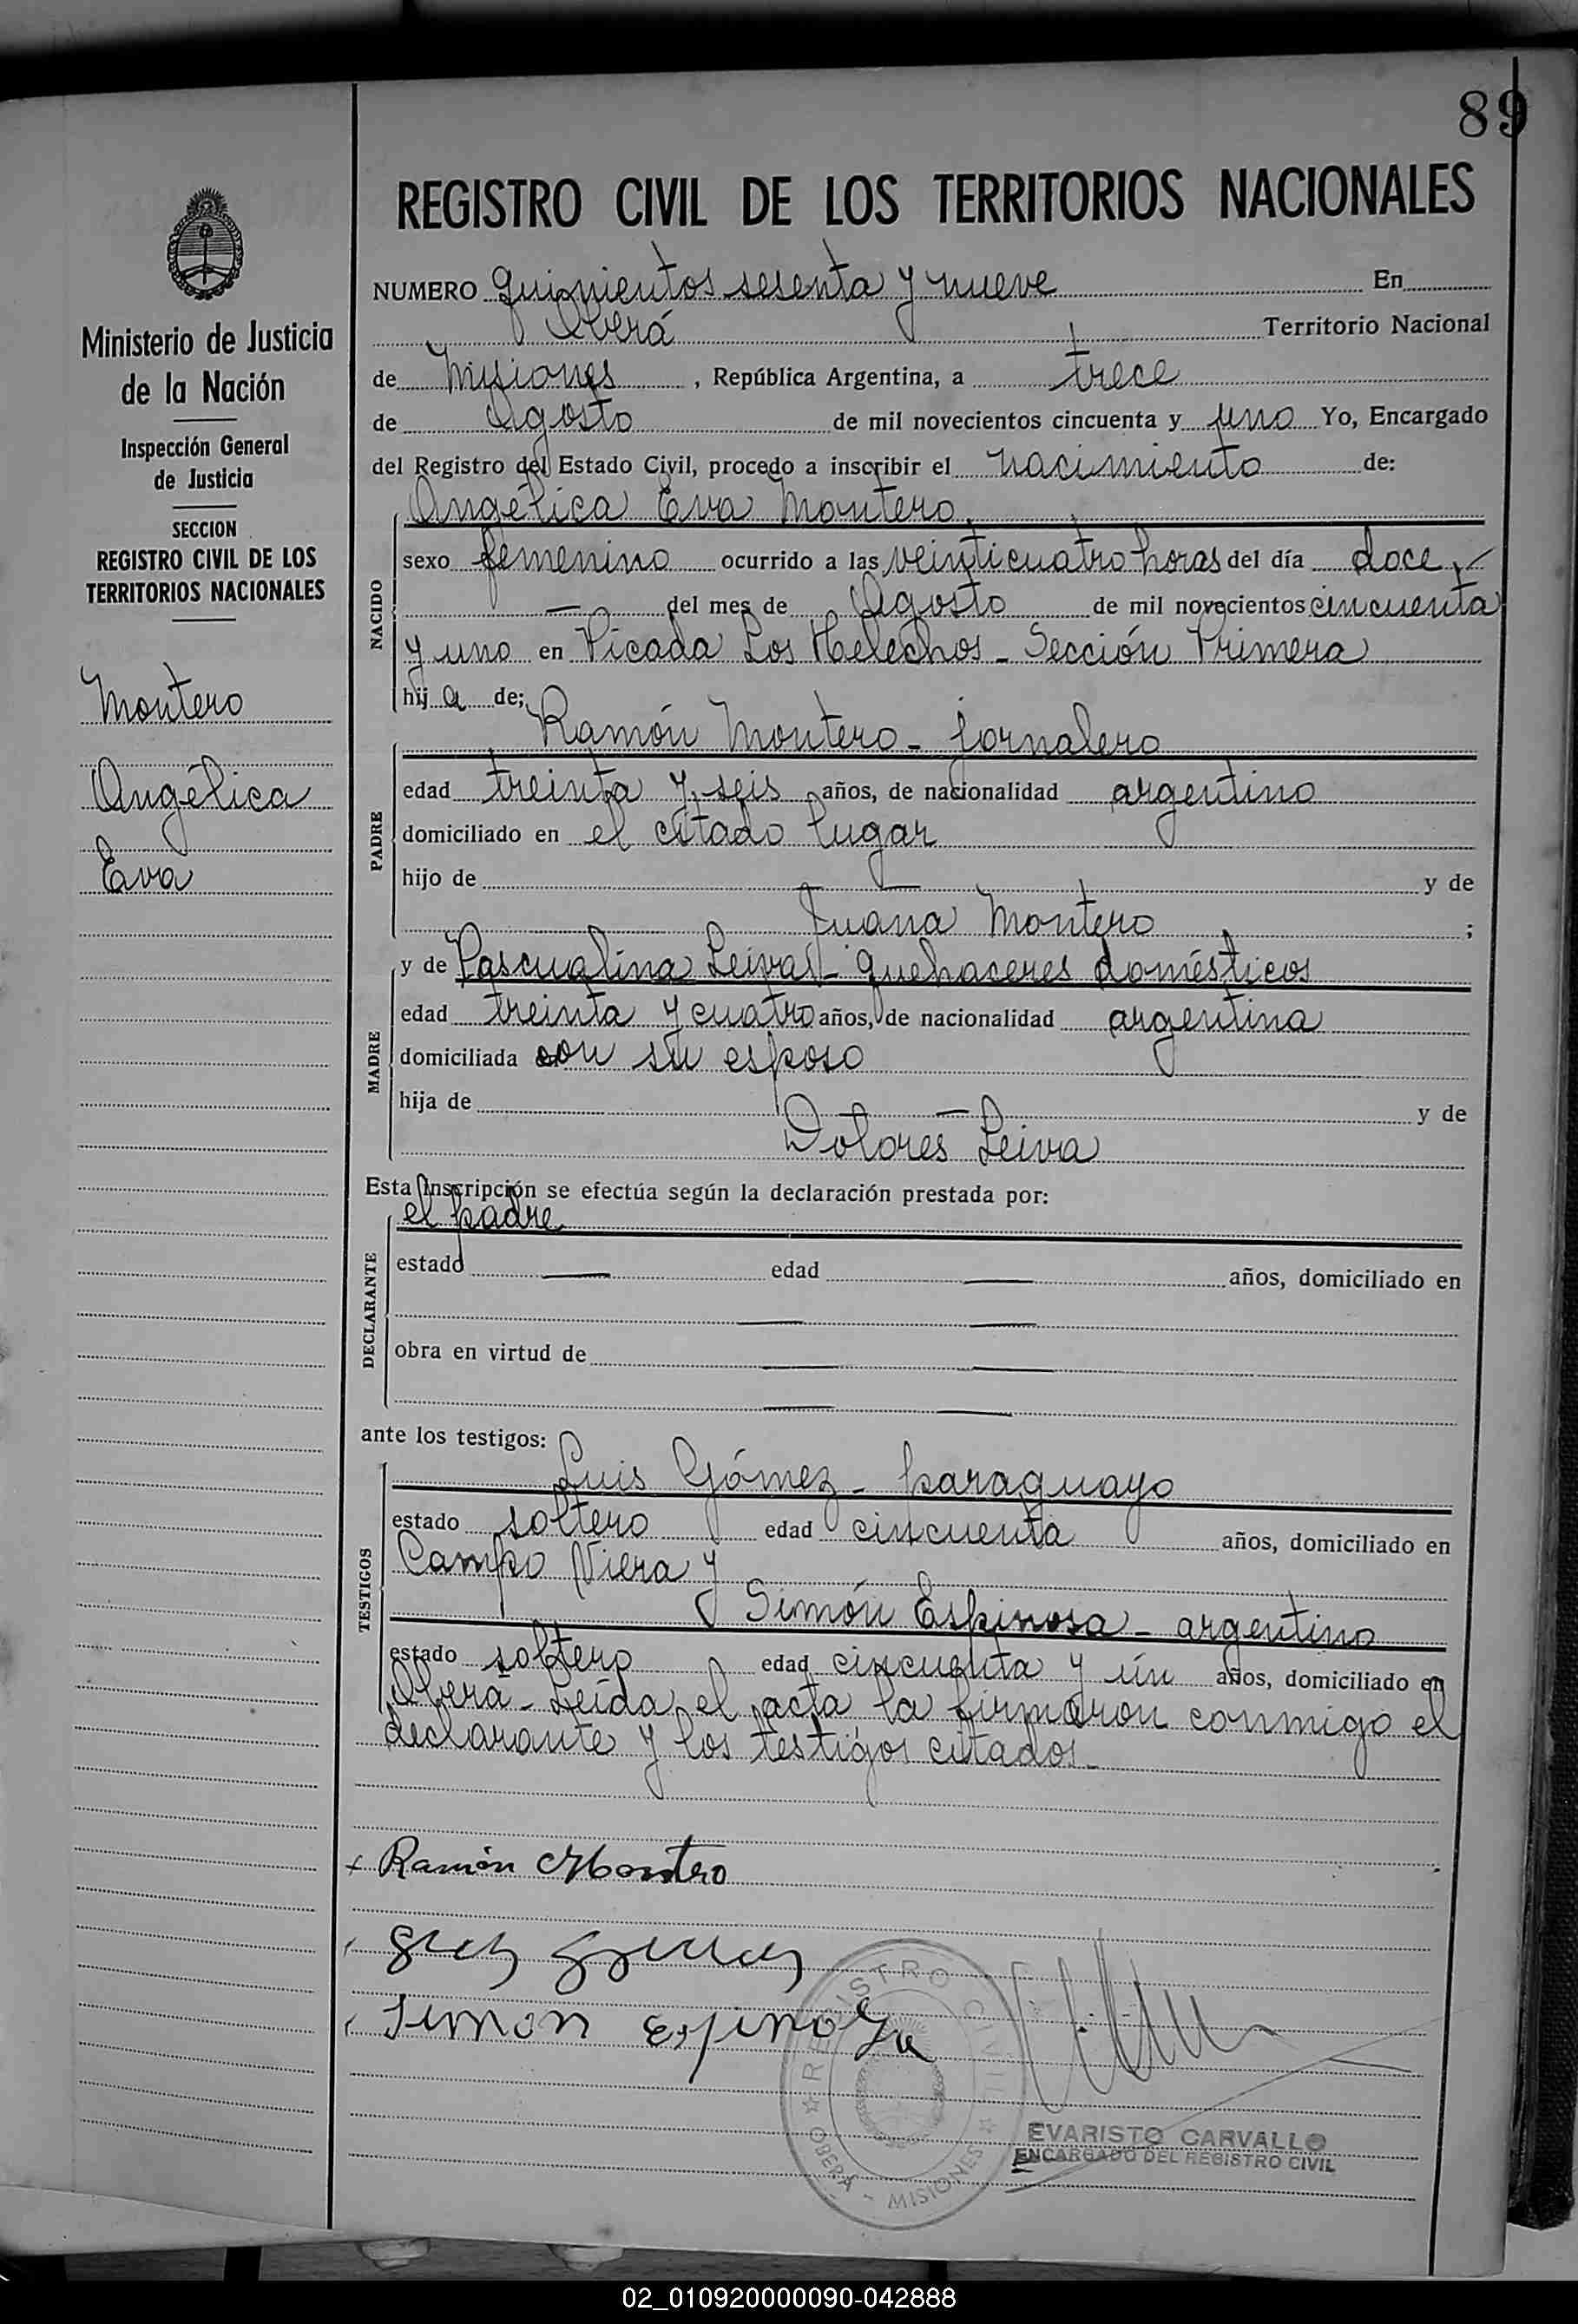 89
REGISTRO CIVIL DE LOS TERRITORIOS NACIONALES
NUMERO quinientos sesenta y nueve En
Oberá Territorio Nacional
de Misiones, República Argentina, a trece
de Agosto de mil novecientos cincuenta y uno Yo, Encargado
del Registro del Estado Civil, procedo a inscribir el nacimiento de:
Angélica Eva Montero
sexo femenino ocurrido a las veinticuatro horas del día doce,
— del mes de Agosto de mil novecientos cincuenta
y uno en Picada Los Helechos - Sección Primera
hij a de;
NACIDO
Ramón Montero - jornalero
edad treinta y seis años, de nacionalidad argentino
domiciliado en el citado lugar
hijo de — — y de
Juana Montero ;
PADRE
y de Pascualina Leiva - quehaceres domésticos
edad treinta y cuatro años, de nacionalidad argentina
domiciliada con su esposo
hija de — y de
Dolores Leiva
MADRE
Esta inscripción se efectúa según la declaración prestada por:
el padre
estado — edad — años, domiciliado en
— —
obra en virtud de — —
— —
DECLARANTE
ante los testigos:
Luis Gómez - paraguayo
estado soltero edad cincuenta años, domiciliado en
Campo Viera y
Simón Espinosa - argentino
estado soltero edad cincuenta y ún años, domiciliado en
TESTIGOS
Oberá - Leída el acta la firmaron conmigo el
declarante y los testigos citados -
x Ramón Montero
Simon Espinosa
REGISTRO CIVIL
OBERÁ - MISIONES
EVARISTO CARVALLO
ENCARGADO DEL REGISTRO CIVIL
Ministerio de Justicia
de la Nación
Inspección General
de Justicia
SECCION
REGISTRO CIVIL DE LOS
TERRITORIOS NACIONALES
Montero
Angélica
Eva
02_010920000090-042888